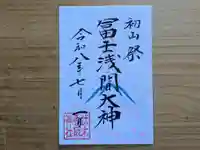 初山祭
冨士浅間大神
令和八年七月一日